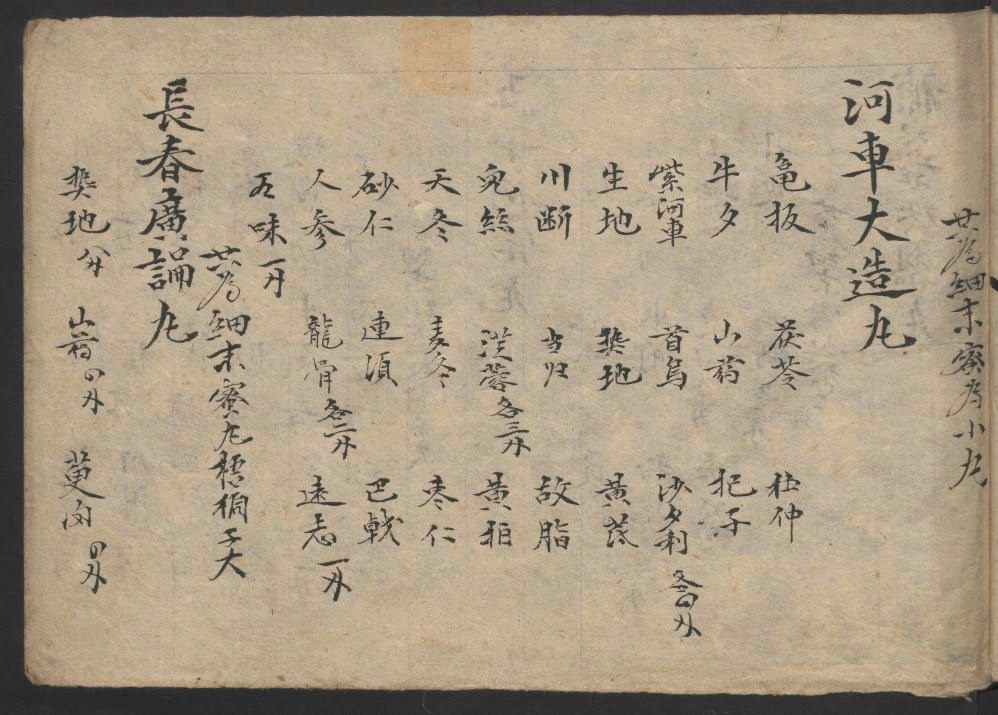 共為細末蜜為小丸
河車大造丸
亀板 茯苓 杜仲
牛夕 山藥 杞子
紫河車 首烏 沙夕利 各四分
生地 熟地 黄茋
川断 当归 故脂
兔絲 蓉各三分 黄柏
天冬 麦冬 枣仁
砂仁 連須 巴戟
人参 龍骨各二分 遠志一分
五味一分
共為細末蜜丸梧桐子大
長春廣論丸
熟地八分 山藥四分 萸肉四分